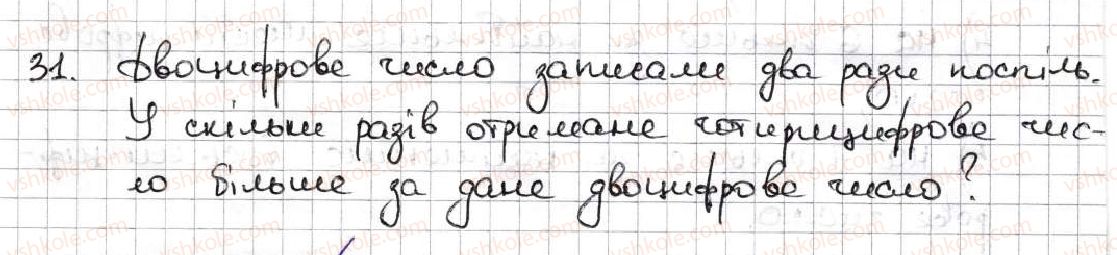 31. Двоцифрове число записали два рази поспіль.
У скільки разів отримане чотирицифрове чис-
ло більше за дане двоцифрове число?